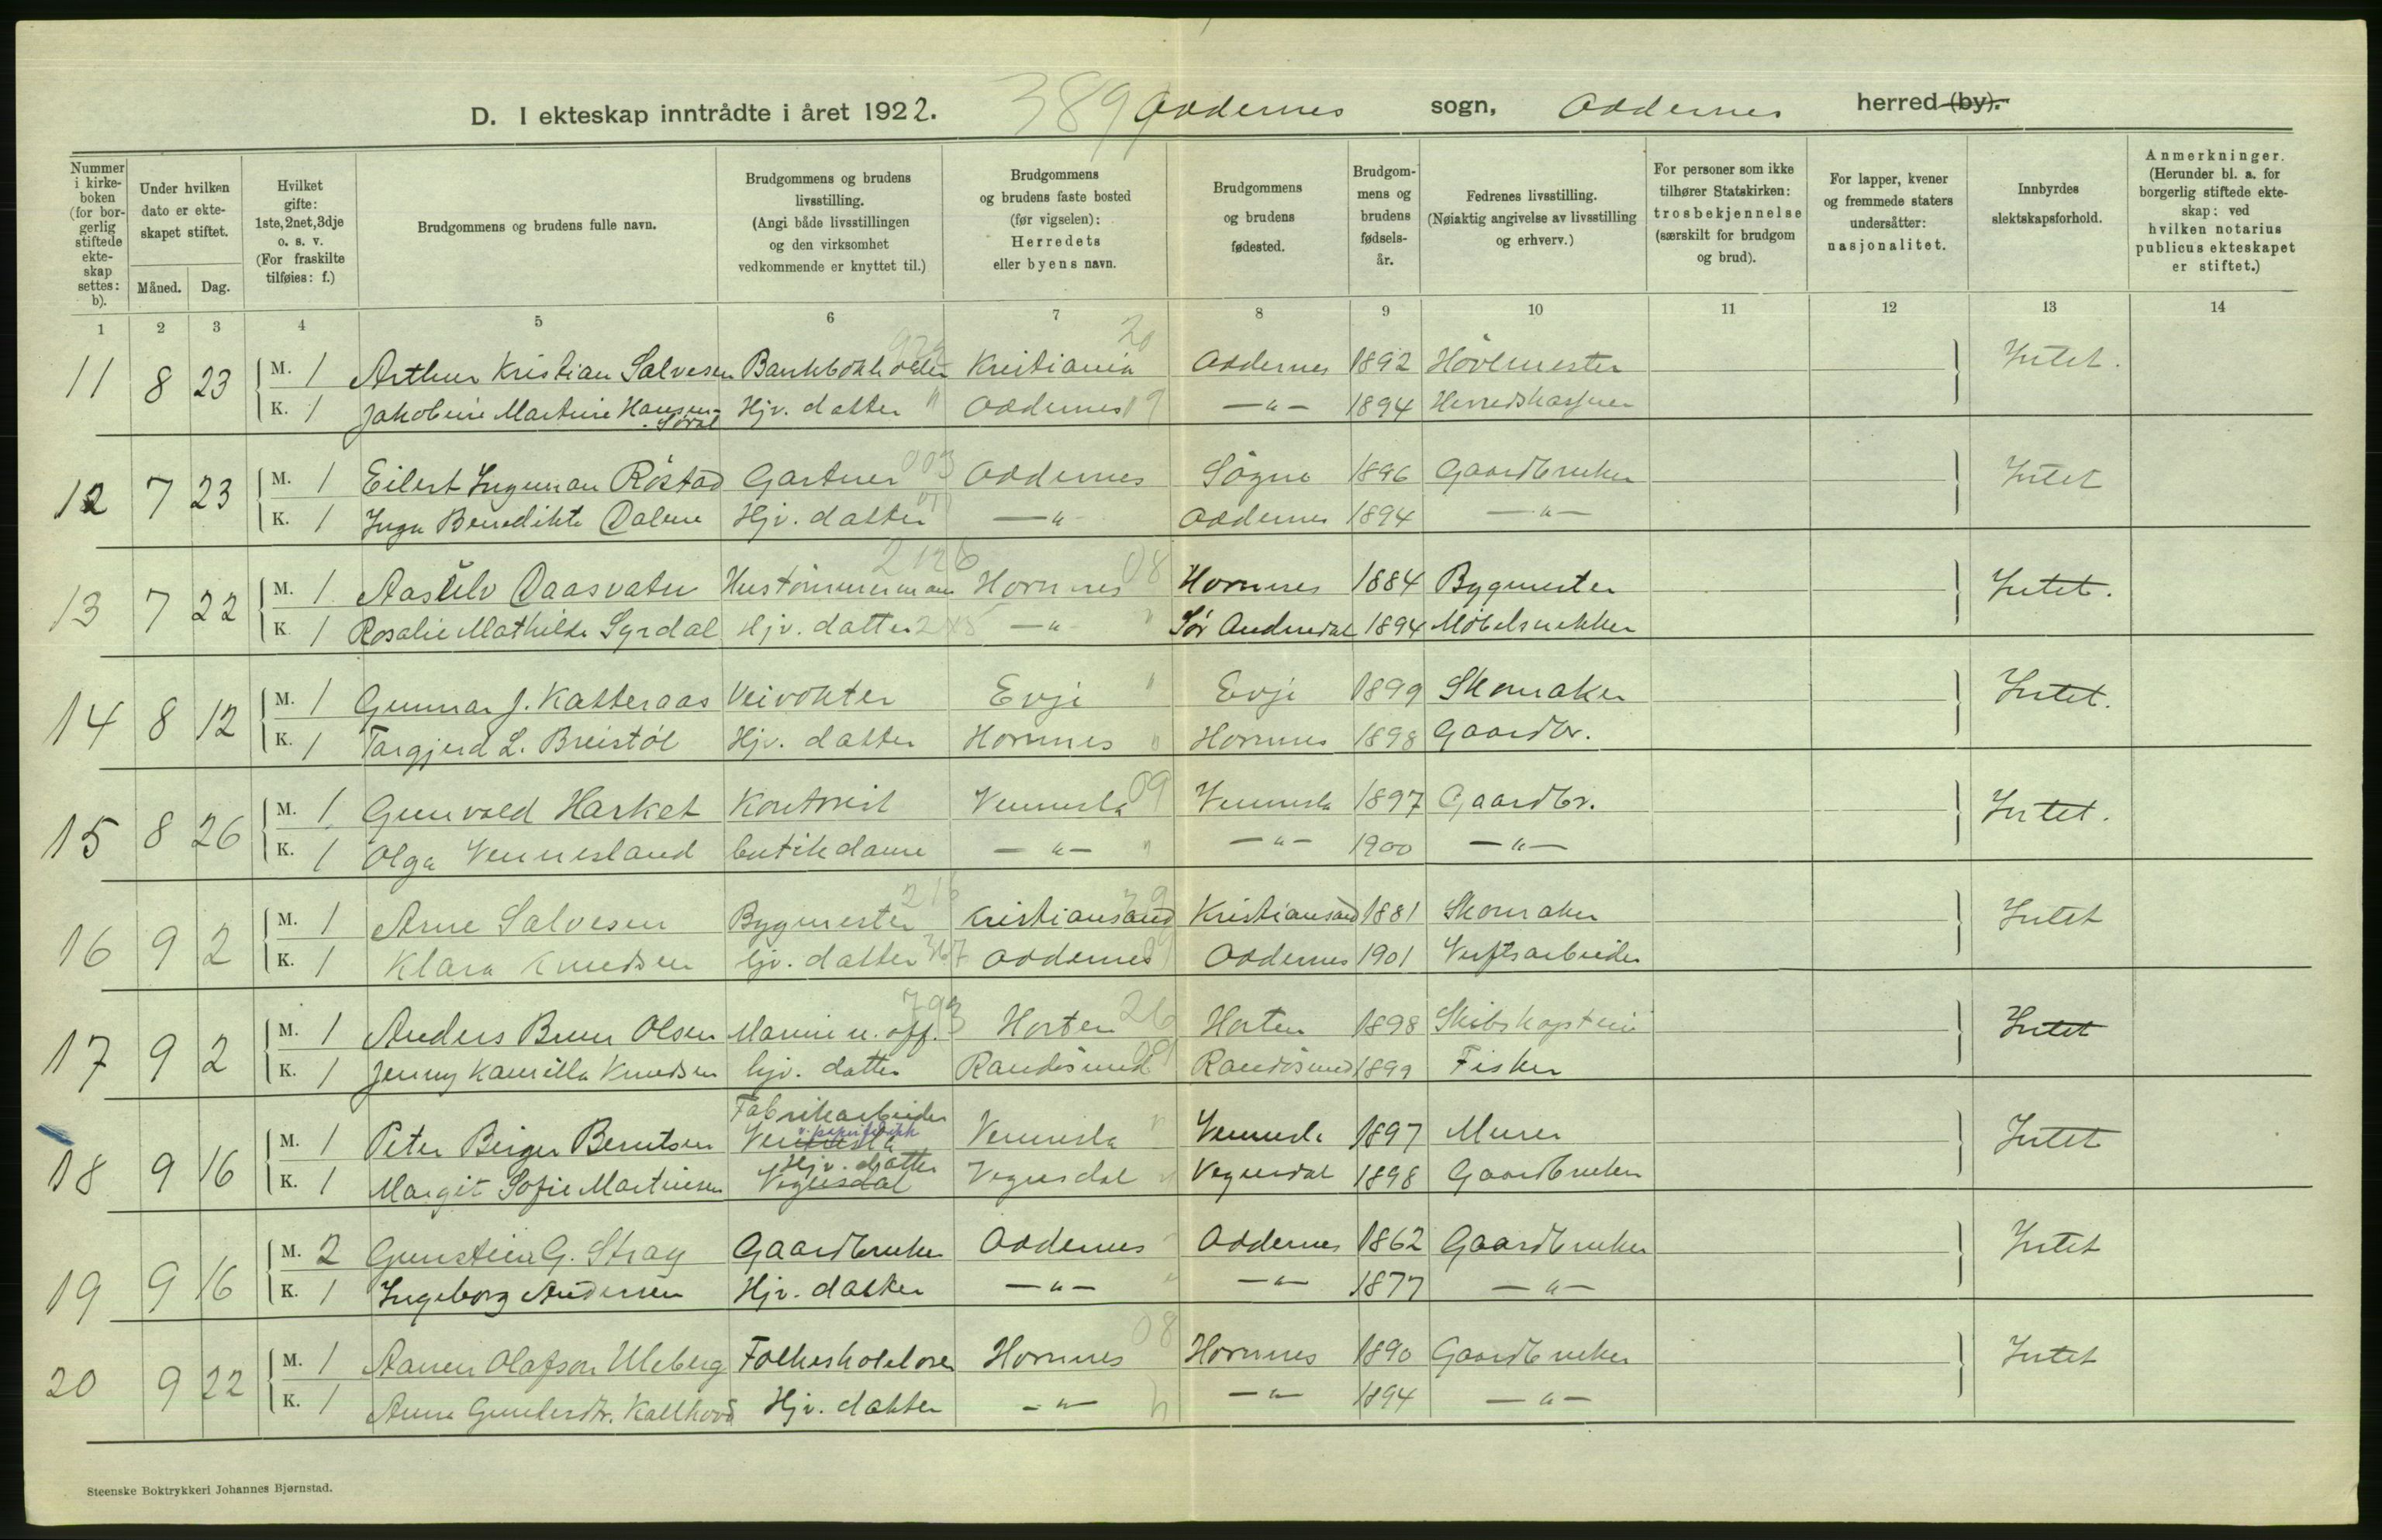 D. I ekteskap inntrådte i året 1922. 389 Oddernes sogn, Oddernes herred (by).
Nummer i kirkeboken (for borgerlig stiftede ekteskap settes: b). Under hvilken dato er ekteskapet stiftet. Måned. Dag. Hvilket gifte: 1ste, 2net, 3dje o. s. v. (For fraskilte tilføies: f.) Brudgommens og brudens fulle navn. Brudgommens og brudens livsstilling. (Angi både livsstillingen og den virksomhet vedkommende er knyttet til.) Brudgommens og brudens faste bosted (før vigselen): Herredets eller byens navn. Brudgommens og brudens fødested. Brudgommens og brudens fødselsår. Fedrenes livsstilling. (Nøiaktig angivelse av livsstilling og erhverv.) For personer som ikke tilhører Statskirken: trosbekjennelse (særskilt for brudgom og brud). For lapper, kvener og fremmede staters undersåtter: nasjonalitet. Innbyrdes slektskapsforhold. Anmerkninger. (Herunder bl. a. for borgerlig stiftede ekteskap: ved hvilken notarius publicus ekteskapet er stiftet.)
1 2 3 4 5 6 7 8 9 10 11 12 13 14
11 8 23 M. 1 Arthur Kristian Salvesen Bankbokholder Kristiania 20 Oddernes 1892 Hövlmester Intet.
K. 1 Jakobine Martine Hansen Sørdal Hjv. datter " Oddernes 09 —"— 1894 Herredskasserer
12 7 23 M. 1 Eilert Ingeman Röstad Gartner 003 Oddernes Sögne 1896 Gaardbruker Intet
K. 1 Inga Benedikte Dalene Hjv. datter —"— Oddernes 1894 —"—
13 7 22 M. 1 Aasulv Daasvatn Hustömmerman Hornnes 08 Hornnes 1884 Bygmester Intet.
K. 1 Rosalie Mathilde Syrdal Hjv. datter —"— " Sör Audnedal 1894 Möbelsnekker
14 8 12 M. 1 Gunnar J. Katteraas Veivokter Evje " Evje 1899 Skomaker Intet.
K. 1 Targjerd L. Breistöl Hjv. datter Hornnes " Hornnes 1898 Gaardbr.
15 8 26 M. 1 Gunvald Harket Kontorist Vennesla 09 Vennesla 1897 Gaardbr. Intet.
K. 1 Olga Vennesland butikdame —"— " —"— 1900 —"—
16 9 2 M. 1 Arne Salvesen Bygmester Kristiansand 39 Kristiansand 1881 Skomaker Intet
K. 1 Klara Knudsen hjv. datter Oddernes 09 Oddernes 1901 Verftsarbeider
17 9 2 M. 1 Anders Bruun Olsen Marine u. off. 793 Horten 26 Horten 1898 Skibskaptein Intet
K. 1 Jenny Kamilla Knudsen hjv. datter Randösund 09 Randösund 1899 Fisker
Fabrikarbeider
18 9 16 M. 1 Peter Birger Berntsen Vennesla Vennesla " Vennesla 1897 Murer Intet
Hjv. datter
K. 1 Margit Sofie Martinsen Vegusdal Vegusdal " Vegusdal 1898 Gaardbruker
19 9 16 M. 2 Gunstein G. Stray Gaardbruker Oddernes Oddernes 1862 Gaardbruker Intet
K. 1 Ingeborg Andersen Hjv. datter —"— " —"— 1877 —"—
20 9 22 M. 1 Aanen Olafson Uleberg Folkeskolelærer Hornnes 08 Hornnes 1890 Gaardbruker Intet
K. 1 Anna Gundersdtr. Kallhovd Hjv. datter —"— —"— 1894 —"—
Steenske Boktrykkeri Johannes Bjørnstad.